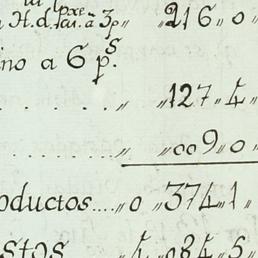 H.d. a 3p „ „216„0„
ino a 6 p.s
. . . . . . . „ „127„4„
. . . . . . . „ „009„0„
oductos....„0„374„1„
stos „4„084„5„